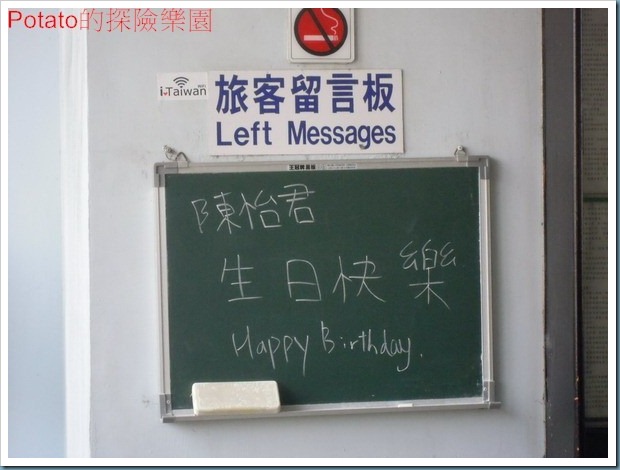 Potato的探險樂園
iTaiwan
旅客留言板
Left Messages
陳怡君
生日快樂
Happy Birthday.